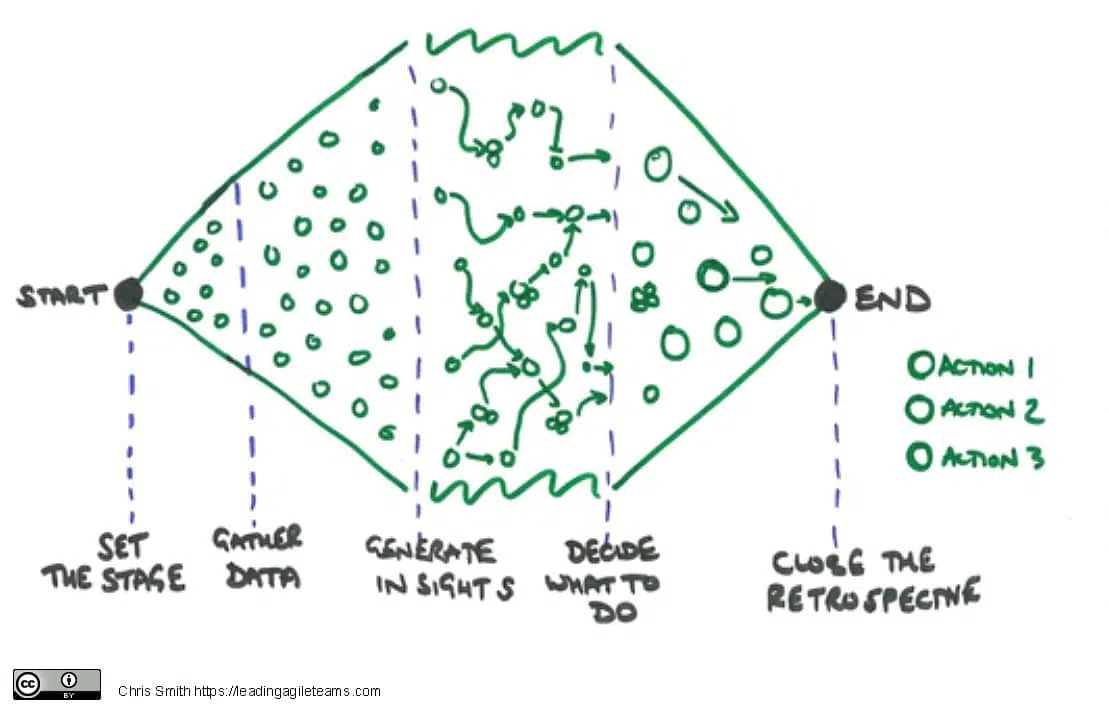 START
END
ACTION 1
ACTION 2
ACTION 3
SET
THE STAGE
GATHER
DATA
GENERATE
INSIGHTS
DECIDE
WHAT TO
DO
CLOSE THE
RETROSPECTIVE
cc
BY
Chris Smith https://leadingagileteams.com